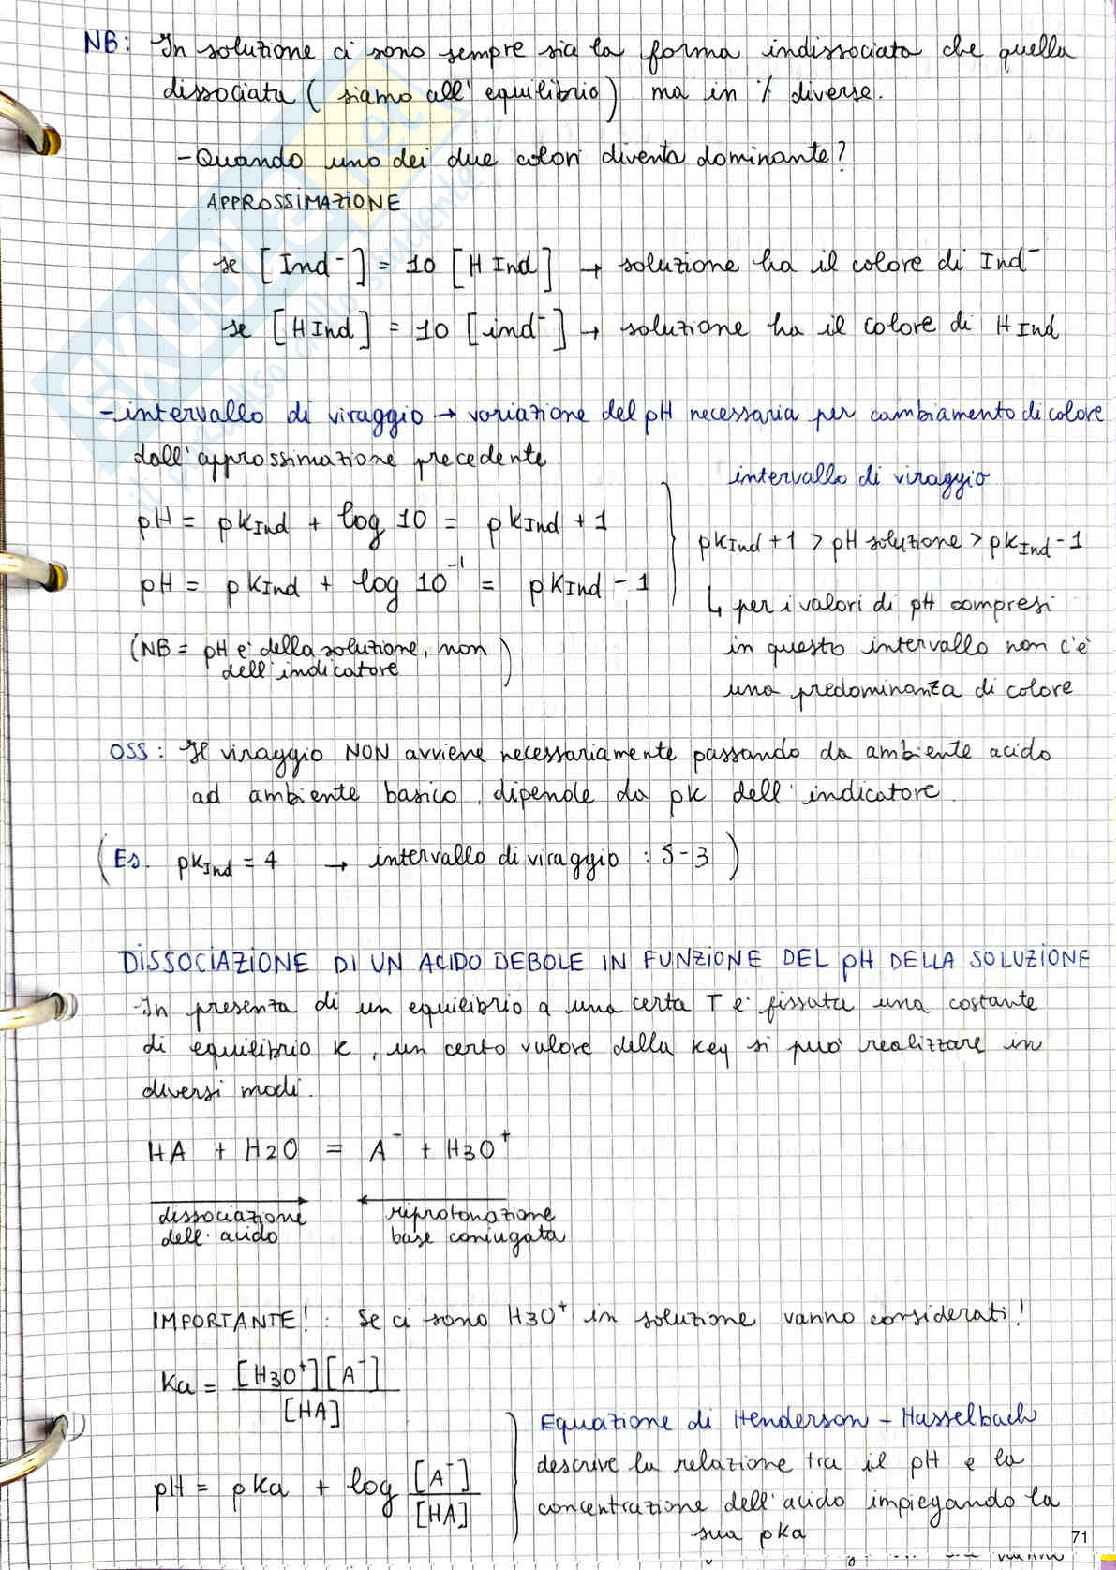 NB: In soluzione ci sono sempre sia la forma indissociata che quella
dissociata (siamo all'equilibrio) ma in % diverse.
- Quando uno dei due colori diventa dominante?
APPROSSIMAZIONE
se [Ind⁻] = 10 [HInd] → soluzione ha il colore di Ind⁻
se [HInd] = 10 [ind⁻] → soluzione ha il colore di HInd
- intervallo di viraggio → variazione del pH necessaria per cambiamento di colore
dall'approssimazione precedente
intervallo di viraggio
pH = pKInd + log 10 = pKInd + 1
pKInd + 1 > pH soluzione > pKInd - 1
pH = pKInd + log 10⁻¹ = pKInd - 1
↳ per i valori di pH compresi
in questo intervallo non c'è
una predominanza di colore
(NB = pH è della soluzione, non
dell'indicatore)
OSS: Il viraggio NON avviene necessariamente passando da ambiente acido
ad ambiente basico, dipende da pK dell'indicatore.
(Es. pKInd = 4 → intervallo di viraggio : 5-3)
DISSOCIAZIONE DI UN ACIDO DEBOLE IN FUNZIONE DEL pH DELLA SOLUZIONE
-In presenza di un equilibrio a una certa T è fissata una costante
di equilibrio K, un certo valore della Keq si può realizzare in
diversi modi.
HA + H2O = A⁻ + H3O⁺
dissociazione
dell'acido
riprotonazione
base coniugata
IMPORTANTE! : Se ci sono H3O⁺ in soluzione vanno considerati!
Ka = [H3O⁺][A⁻]
[HA]
pH = pKa + log [A⁻]
[HA]
Equazione di Henderson - Hasselbach
descrive la relazione tra il pH e la
concentrazione dell'acido impiegando la
sua pKa
71